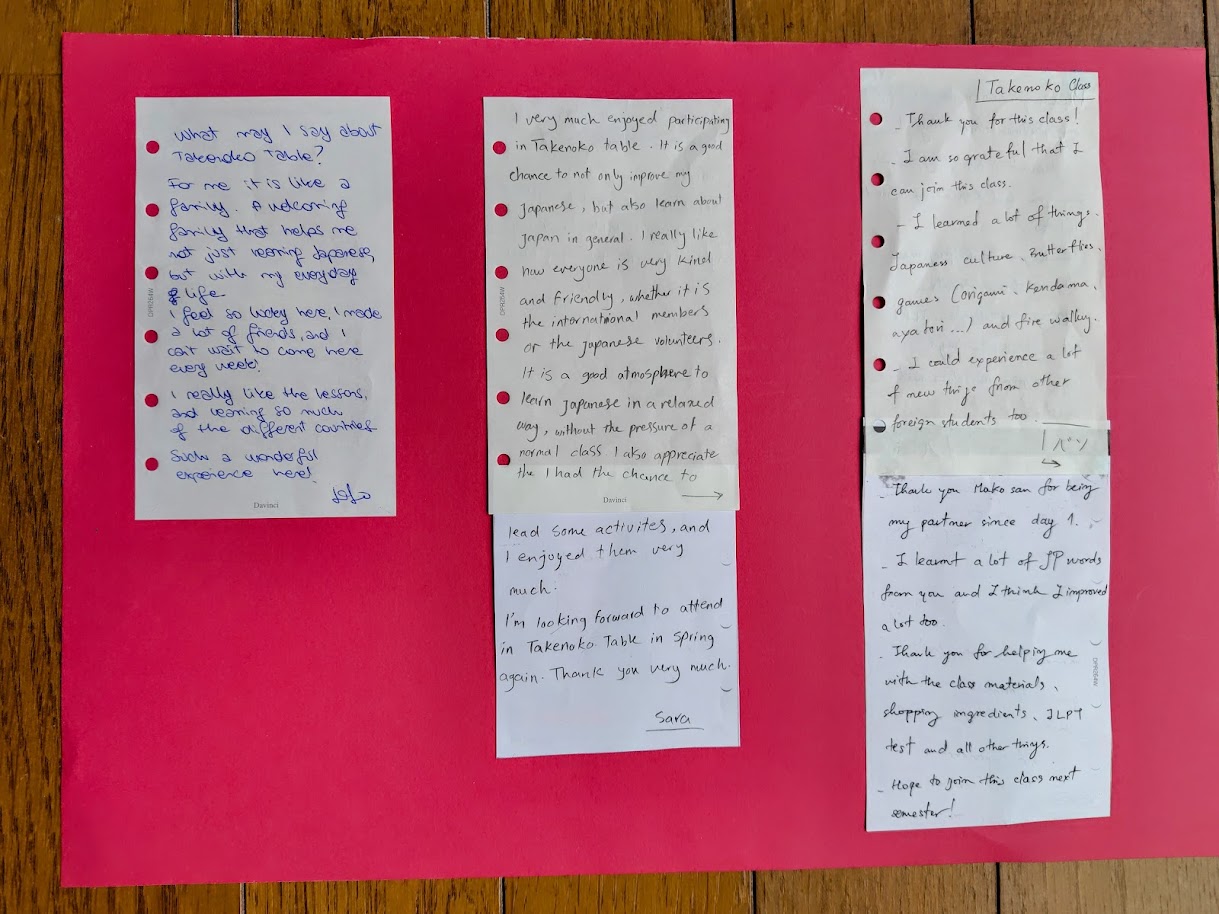 What may I say about
Takenoko Table?
For me it is like a
family. A welcoming
family that helps me
not just learning Japanese,
but with my everyday
life.
I feel so lucky here, I made
a lot of friends, and I
can't wait to come here
every week!
I really like the lessons,
and learning so much
of the different countries
Such a wonderful
experience here!
DPR264W
Davinci
I very much enjoyed participating
in Takenoko table. It is a good
chance to not only improve my
Japanese, but also learn about
Japan in general. I really like
how everyone is very kind
and friendly, whether it is
the international members
or the japanese volunteers.
It is a good atmosphere to
learn japanese in a relaxed
way, without the pressure of a
normal class. I also appreciate
the I had the chance to
DPR264W
Davinci
→
lead some activites, and
I enjoyed them very
much.
I'm looking forward to attend
in Takenoko Table in Spring
again. Thank you very much.
Sara
Takenoko Class
- Thank you for this class!
- I am so grateful that I
can join this class.
- I learned a lot of things.
Japaness culture, Butterflies,
games (origami, kendama,
ayatori...) and fire walky.
- I could experience a lot
of new things from other
foreign students too.
→
- Thank you Mako san for being
my partner since day 1.
- I learnt a lot of JP words
from you and I think I improved
a lot too.
- Thank you for helping me
with the class materials,
shopping ingredients, JLPT
test and all other things.
- Hope to join this class next
semester!
DPR264W